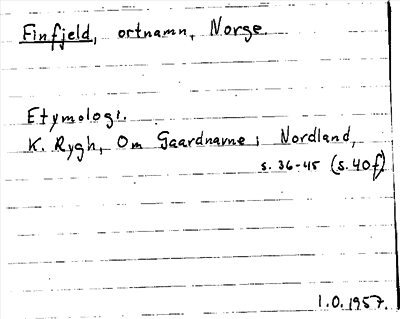 Finfjeld, ortnamn, Norge.
Etymologi.
K. Rygh, Om Gaardnavne i Nordland,
s. 36-45 (s. 40f)
1.0. 1957.